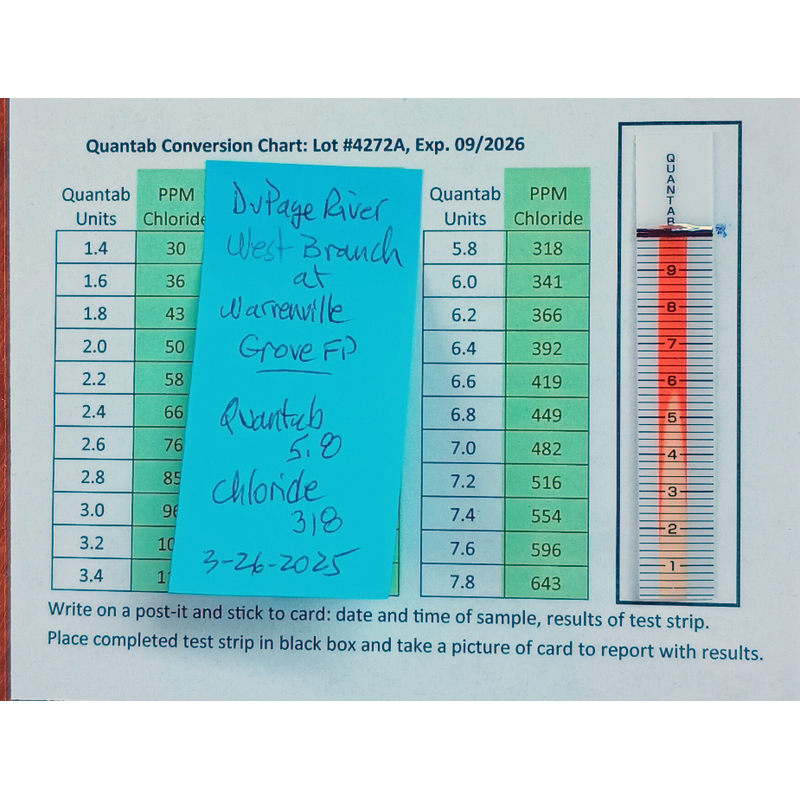 Quantab Conversion Chart: Lot #4272A, Exp. 09/2026
Quantab Units PPM Chloride
1.4 30
1.6 36
1.8 43
2.0 50
2.2 58
2.4 66
2.6 76
2.8 85
3.0
3.2
3.4
DuPage River
West Branch
at
Warrenville
Grove FP
Quantab
5.8
Chloride
318
3-26-2025
Quantab Units PPM Chloride
5.8 318
6.0 341
6.2 366
6.4 392
6.6 419
6.8 449
7.0 482
7.2 516
7.4 554
7.6 596
7.8 643
QUANTAB
9
8
7
6
5
4
3
2
1
Write on a post-it and stick to card: date and time of sample, results of test strip.
Place completed test strip in black box and take a picture of card to report with results.